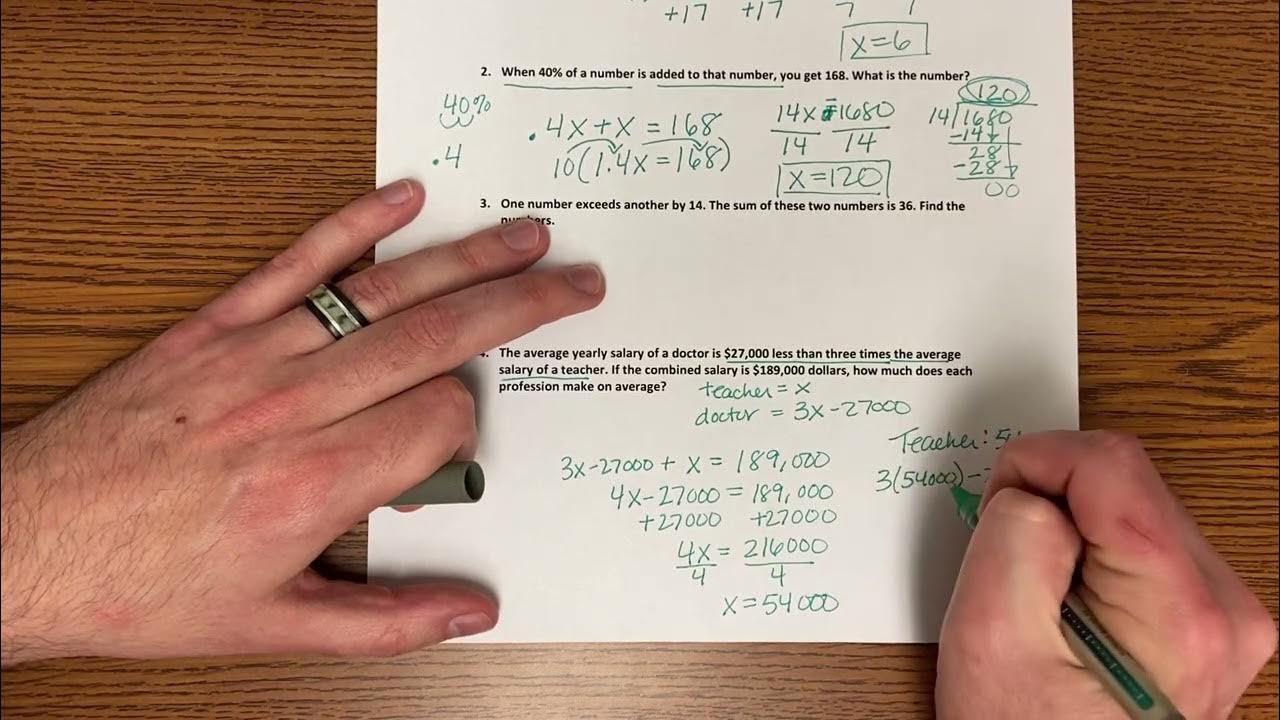 +17 +17 7
x=6
2. When 40% of a number is added to that number, you get 168. What is the number?
40%
.4
.4x+x=168
10(1.4x=168)
14x=1680
14 14
x=120
120
14 1680
-14
28
-28
00
3. One number exceeds another by 14. The sum of these two numbers is 36. Find the
The average yearly salary of a doctor is $27,000 less than three times the average
salary of a teacher. If the combined salary is $189,000 dollars, how much does each
profession make on average?
teacher = x
doctor = 3x-27000
3x-27000 + x = 189,000
4x-27000 = 189,000
+27000 +27000
4x = 216000
4 4
x=54000
Teacher: 
3(54000)-